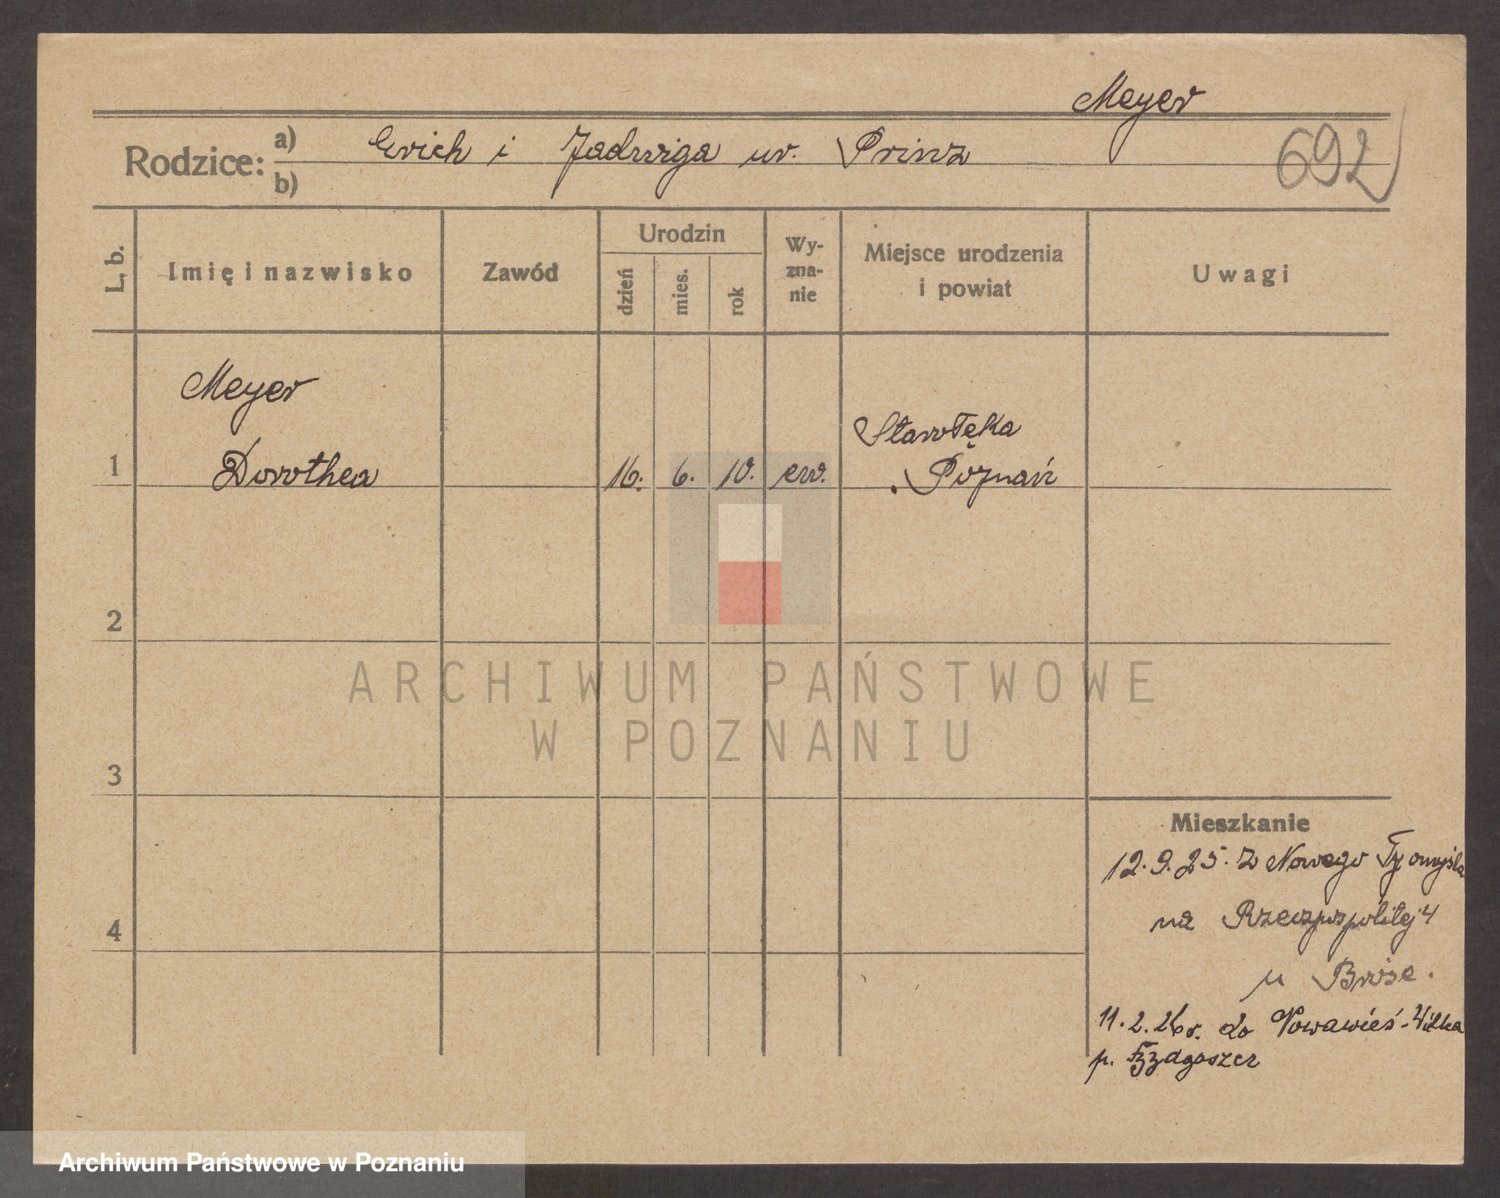 Meyer
Rodzice: a) Erich i Jadwiga ur. Prinz
b)
692
L. b.
Imię i nazwisko
Zawód
Urodzin
dzień
mies.
rok
Wy-
zna-
nie
Miejsce urodzenia
i powiat
Uwagi
Meyer
Starołęka
1 Dorothea 16. 6. 10. ew. Poznań
2
ARCHIWUM PAŃSTWOWE
W POZNANIU
3
Mieszkanie
12.9.25. z Nowego Tomyśla
na Rzeczpospolitej 4
4
u
11.2.26 r. do Nowawieś-Wilka
p. Bydgoszcz
Archiwum Państwowe w Poznaniu